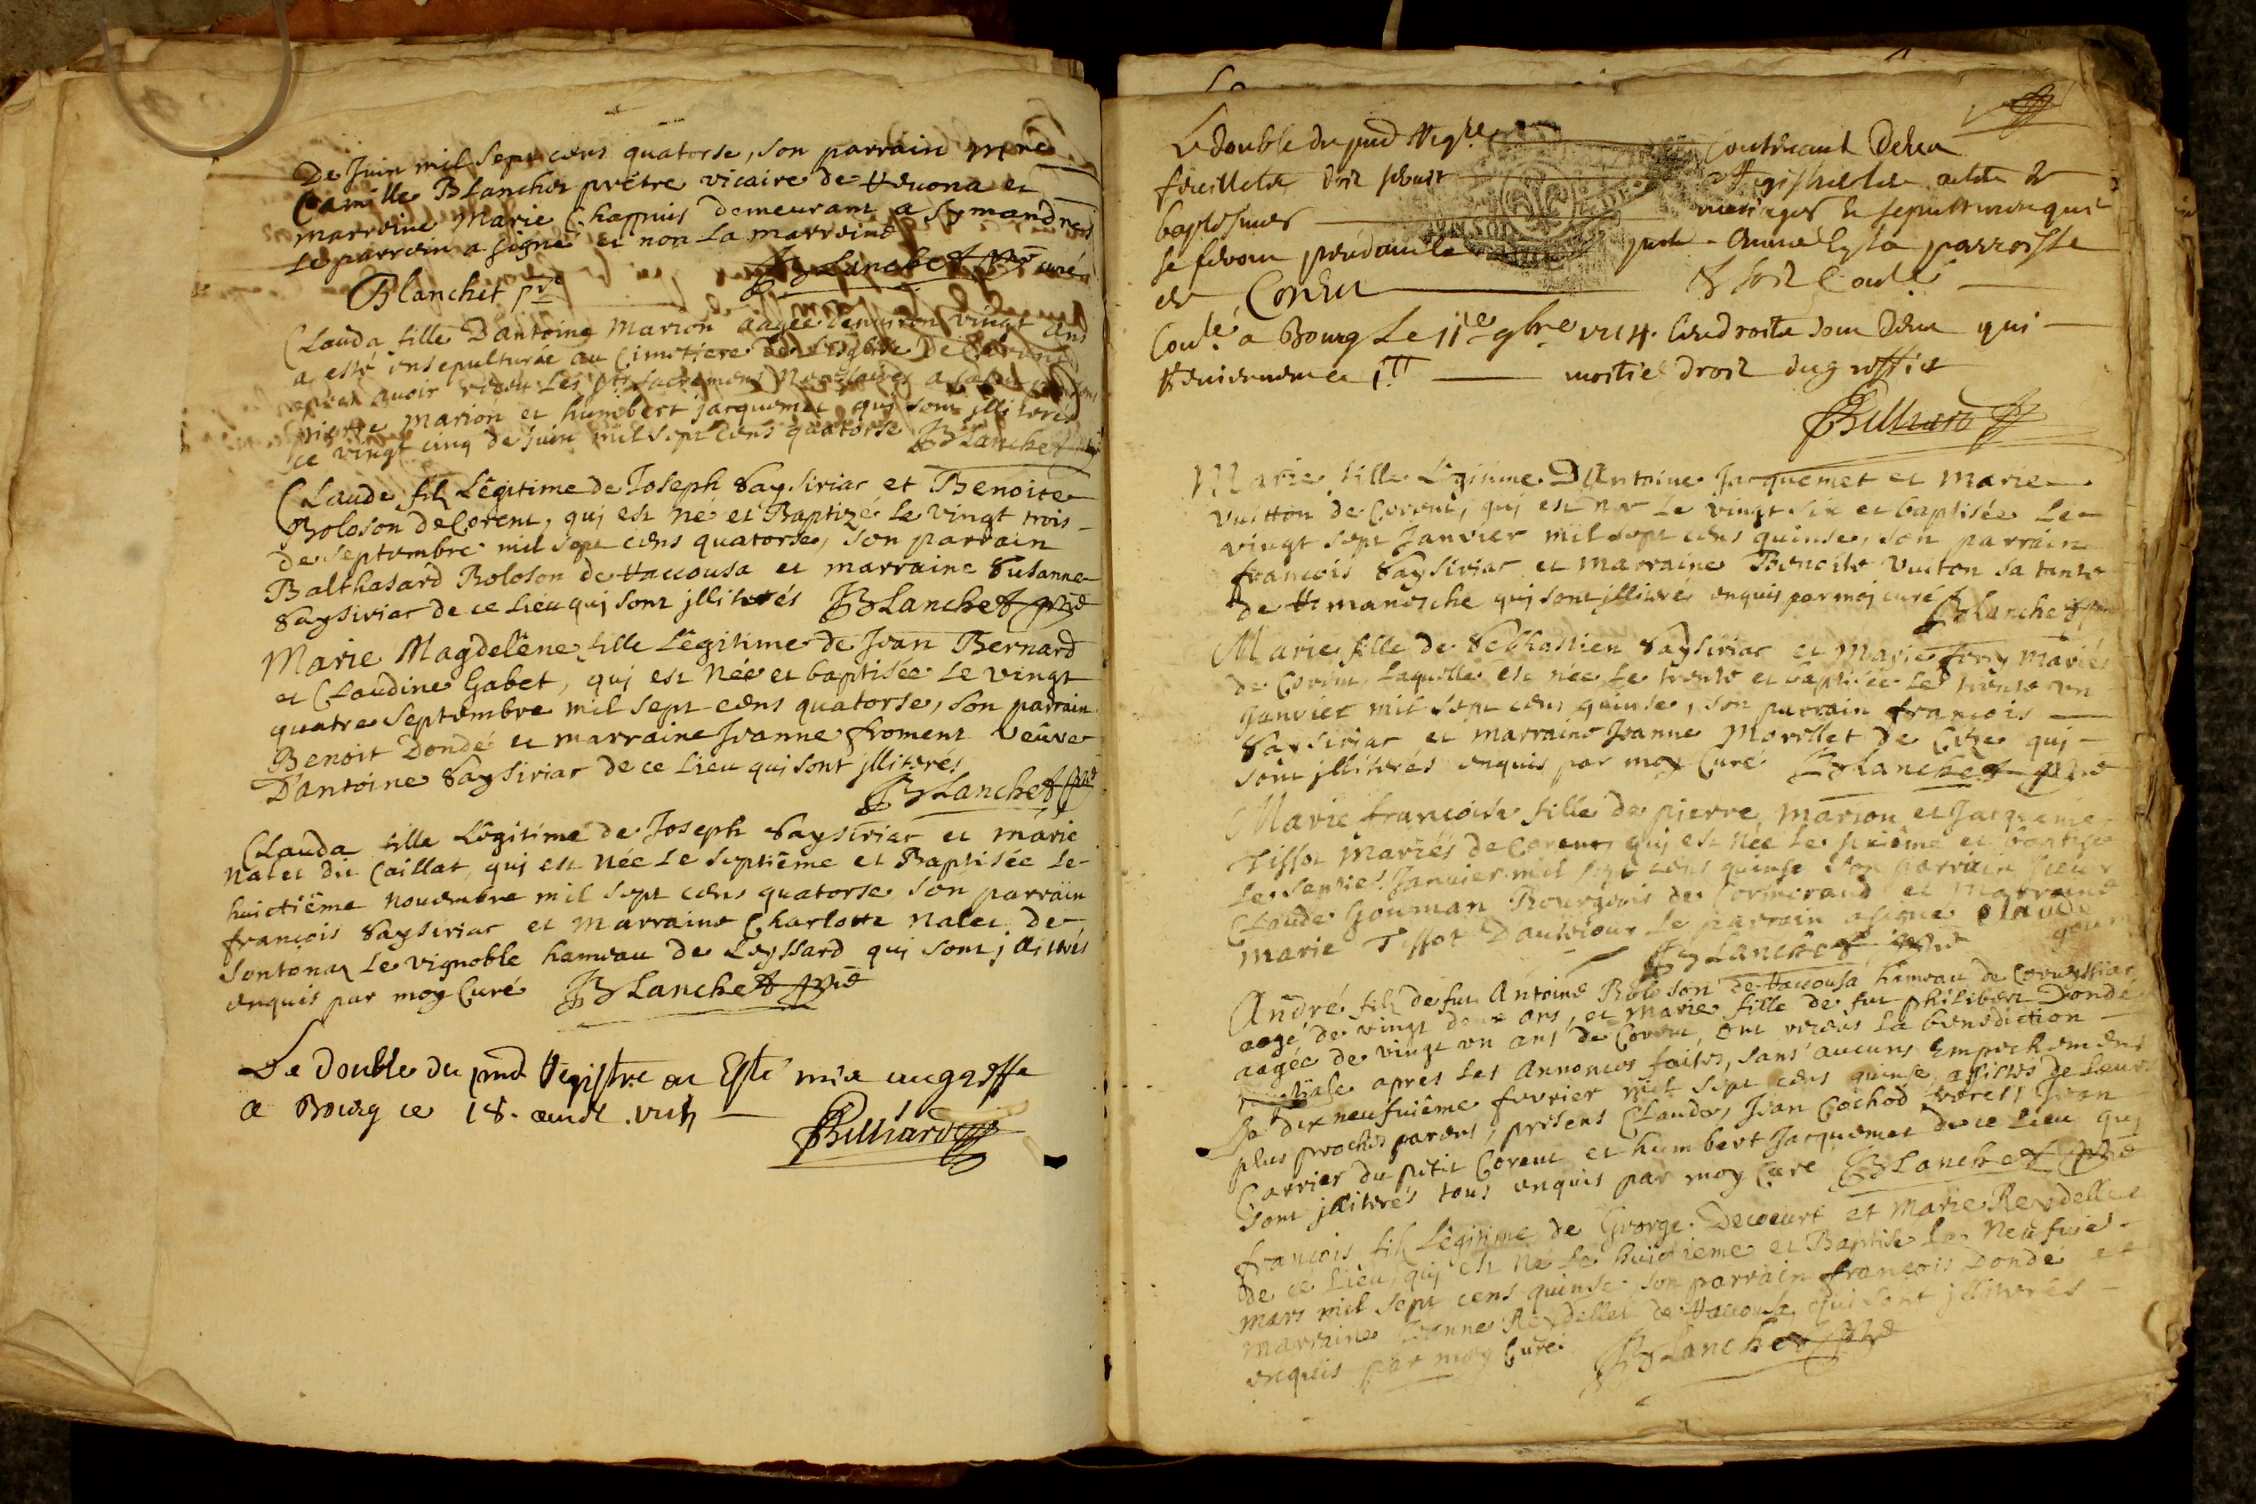 De Juin mil sept cens quatorse, son parrain mre
Camille Blanchet prêtre vicaire de Revona et
marreine Marie Chappuis demeurant a Symandres
le parrein a signé et non la marreine
Blanchet pre curé
Blanchet pre
Clauda fille D'antoine Marion aagée d'environ vingt ans
a esté ensepulturée au Cimitiere de L'esglise de Corent
apres avoir receu Les sts sacremens
pierre Marion et humbert jacquemet qui sont jlliterés
ce vingt cinq de Juin mil sept cens quatorse Blanchet
Claude fils Légitime de Joseph Saysiriac et Benoite
Boloson de Corent, qui est Né et Baptizé le vingt trois
de septembre mil sept cens quatorse, son parrain
Balthasard Boloson de Racousa et marraine Susanne
Saysiriac de ce Lieu qui sont jlliterés Blanchet pre
Marie Magdelêne fille Légitime de Jean Bernard
et Claudine Gabet, qui est Née et baptisée Le vingt
quatre septembre mil sept cens quatorse, son parrain
Benoit Dondé et marraine Jeanne froment veûve
D'antoine Saysiriac de ce Lieu qui sont jlliterés
Blanchet pre
Clauda fille Légitime de Joseph Saysiriac et marie
Nalet dit Caillat, qui est Née Le septième et Baptisée Le
huictiême novembre mil sept cens quatorse, son parrain
françois Saysiriac et Marraine Charlotte Nalet de
Sontonax Le vignoble hameau de Leyssard qui sont jlliterés
enquis par moy Curé Blanchet pre
Le double du pnt Registre a Esté mis au greffe
a Bourg ce 18
Billiard
Le double du pnt Regre contenant deux
feuillets doit servir Registre les actes de
baptesmes mariages & sepultures qui
se feront pendant la pnte année En la parroisse
de Corent & soit Cotté
Cotté a Bourg Le 11e 9bre 1714. Les droits sont deux qui
Reviennent a moitié droit du greffier
Billiard
Marie, fille Légitime D'Antoine Jacquemet et Marie
Vuitton de Corent, qui est Née Le vingt six et baptisée Le
vingt sept Janvier mil sept cens quinse, son parrain
françois Saysiriac et Marraine Benoite Vuiton sa tante
de Romanêche qui sont jlliterés enquis par moi curé Blanchet
Marie fille de Sebastien Saysiriac et Marie Mariés
de Corent, Laquelle est née Le trente et baptisée Le trente un
Janvier mil sept cens quinse, son parrain françois
Saysiriac et Marraine Jeanne Morellet de Cize qui
sont jlliterés enquis par moy Curé Blanchet pre
Marie françoise fille de pierre Marion et Jacqueme
Tissot Mariés de Corent, qui est Née Le sixiême et baptisée
Le septie. Janvier mil sept cens quinse son parrain sieur
Claude Gouman Bourgeois de Cormorand et Marraine
Marie Tissot Le parrain a signé claude
Blanchet pre gouman
André fils de feu Antoine Boloson de Racousa hameau de
aagé de vingt deux ans, et Marie fille de feu philibert Dondé
aagée de vingt un ans de Corent, ont receus La benediction
nuptiale apres Les Annonces faites, sans aucuns Empechemens
Le dix neufviême fevrier mil sept cens quinse, assistés de Leurs
plus proches parens, présens Claude, Jean Cochod freres, Jean
Carrier du petit Corent et humbert Jacquemet de ce Lieu qui
sont jlliterés tous enquis par moy Curé Blanchet pre
françois fils Légitime de George Decoeurt et Marie Reydellet
de ce Lieu, qui est Né Le huictieme et Baptisé Le Neufvie.
Mars mil sept cens quinse son parrain françois Dondé et
Marraine Jeanne Reydellet de Racousa, qui sont jlliterés
enquis par moy Curé. Blanchet pre